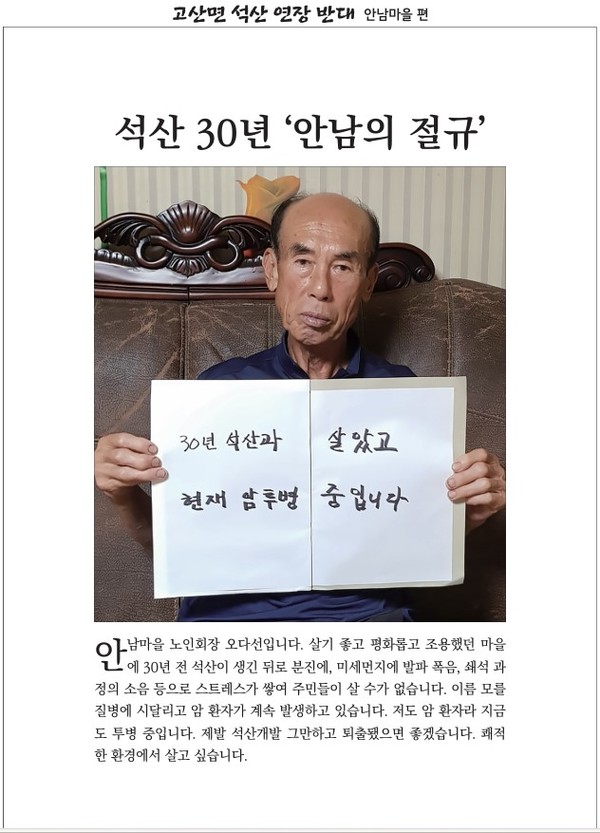 고산면 석산 연장 반대 안남마을 편
석산 30년 ‘안남의 절규’
30년 석산과 살았고
현재 암투병 중입니다
안남마을 노인회장 오다선입니다. 살기 좋고 평화롭고 조용했던 마을
에 30년 전 석산이 생긴 뒤로 분진에, 미세먼지에 발파 폭음, 쇄석 과
정의 소음 등으로 스트레스가 쌓여 주민들이 살 수가 없습니다. 이름 모를
질병에 시달리고 암 환자가 계속 발생하고 있습니다. 저도 암 환자라 지금
도 투병 중입니다. 제발 석산개발 그만하고 퇴출됐으면 좋겠습니다. 쾌적
한 환경에서 살고 싶습니다.